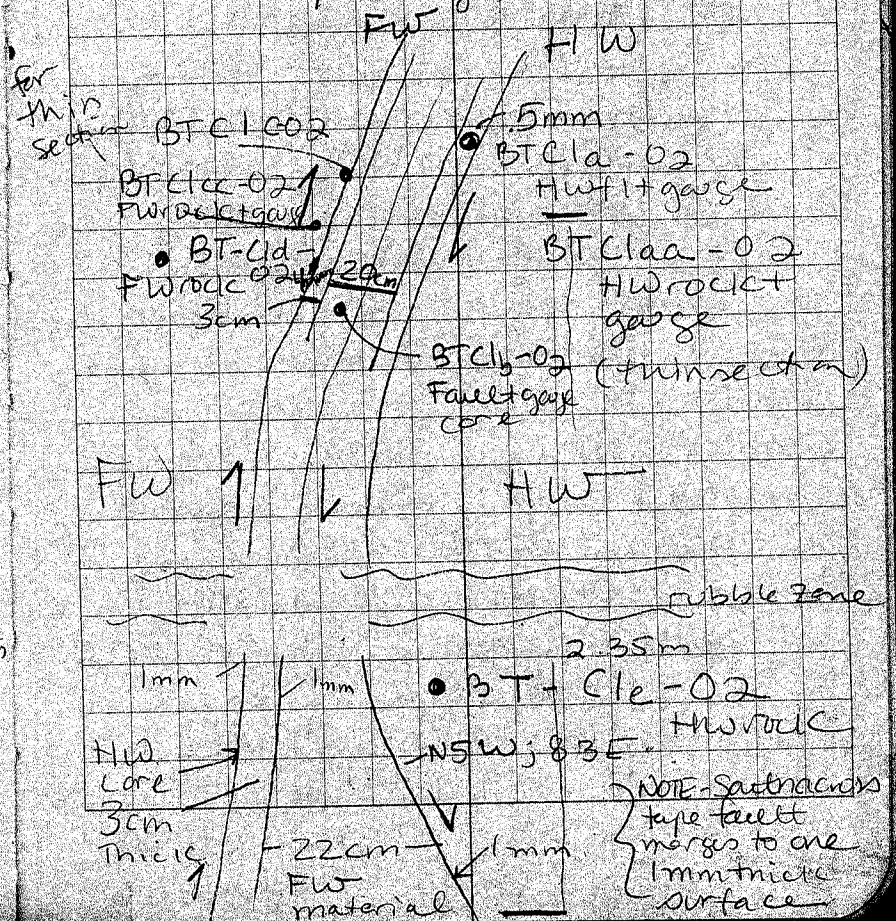 FW
HW
for
thin
section
BTC1C02
BTC1cc-02
FWrock+gouge
BT-C1d-
FWrock 02
20cm
3cm
.5mm
BTC1a-02
HWflt gouge
BTC1aa-02
HWrock+
gouge
(thinsection)
BTC1b-02
Fault gouge
core
FW
HW
rubble zone
2.35m
1mm
1mm
BT-C1e-02
HWrock
N5W; 83E
HW
core
3cm
Thick
22cm
FW
material
1mm
NOTE-South across
tape fault
merges to one
1mm thick
surface